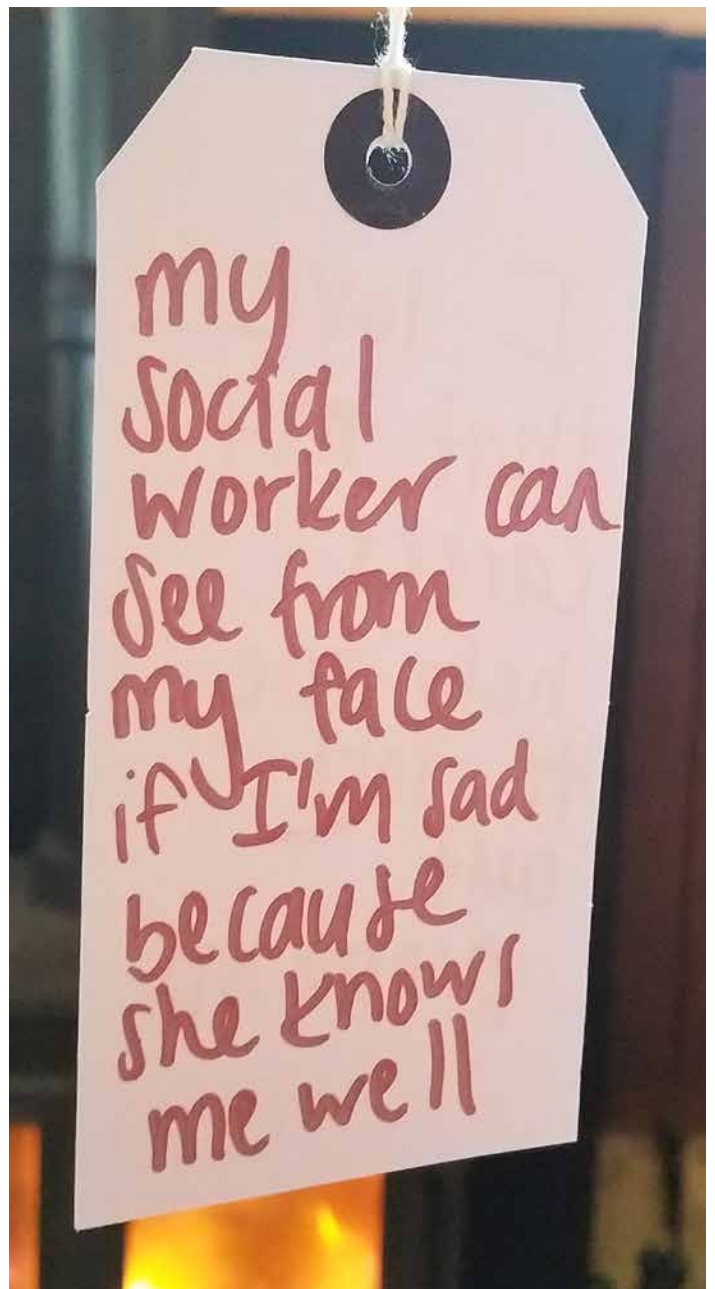 my
social
worker can
see from
my face
if I'm sad
because
she knows
me well